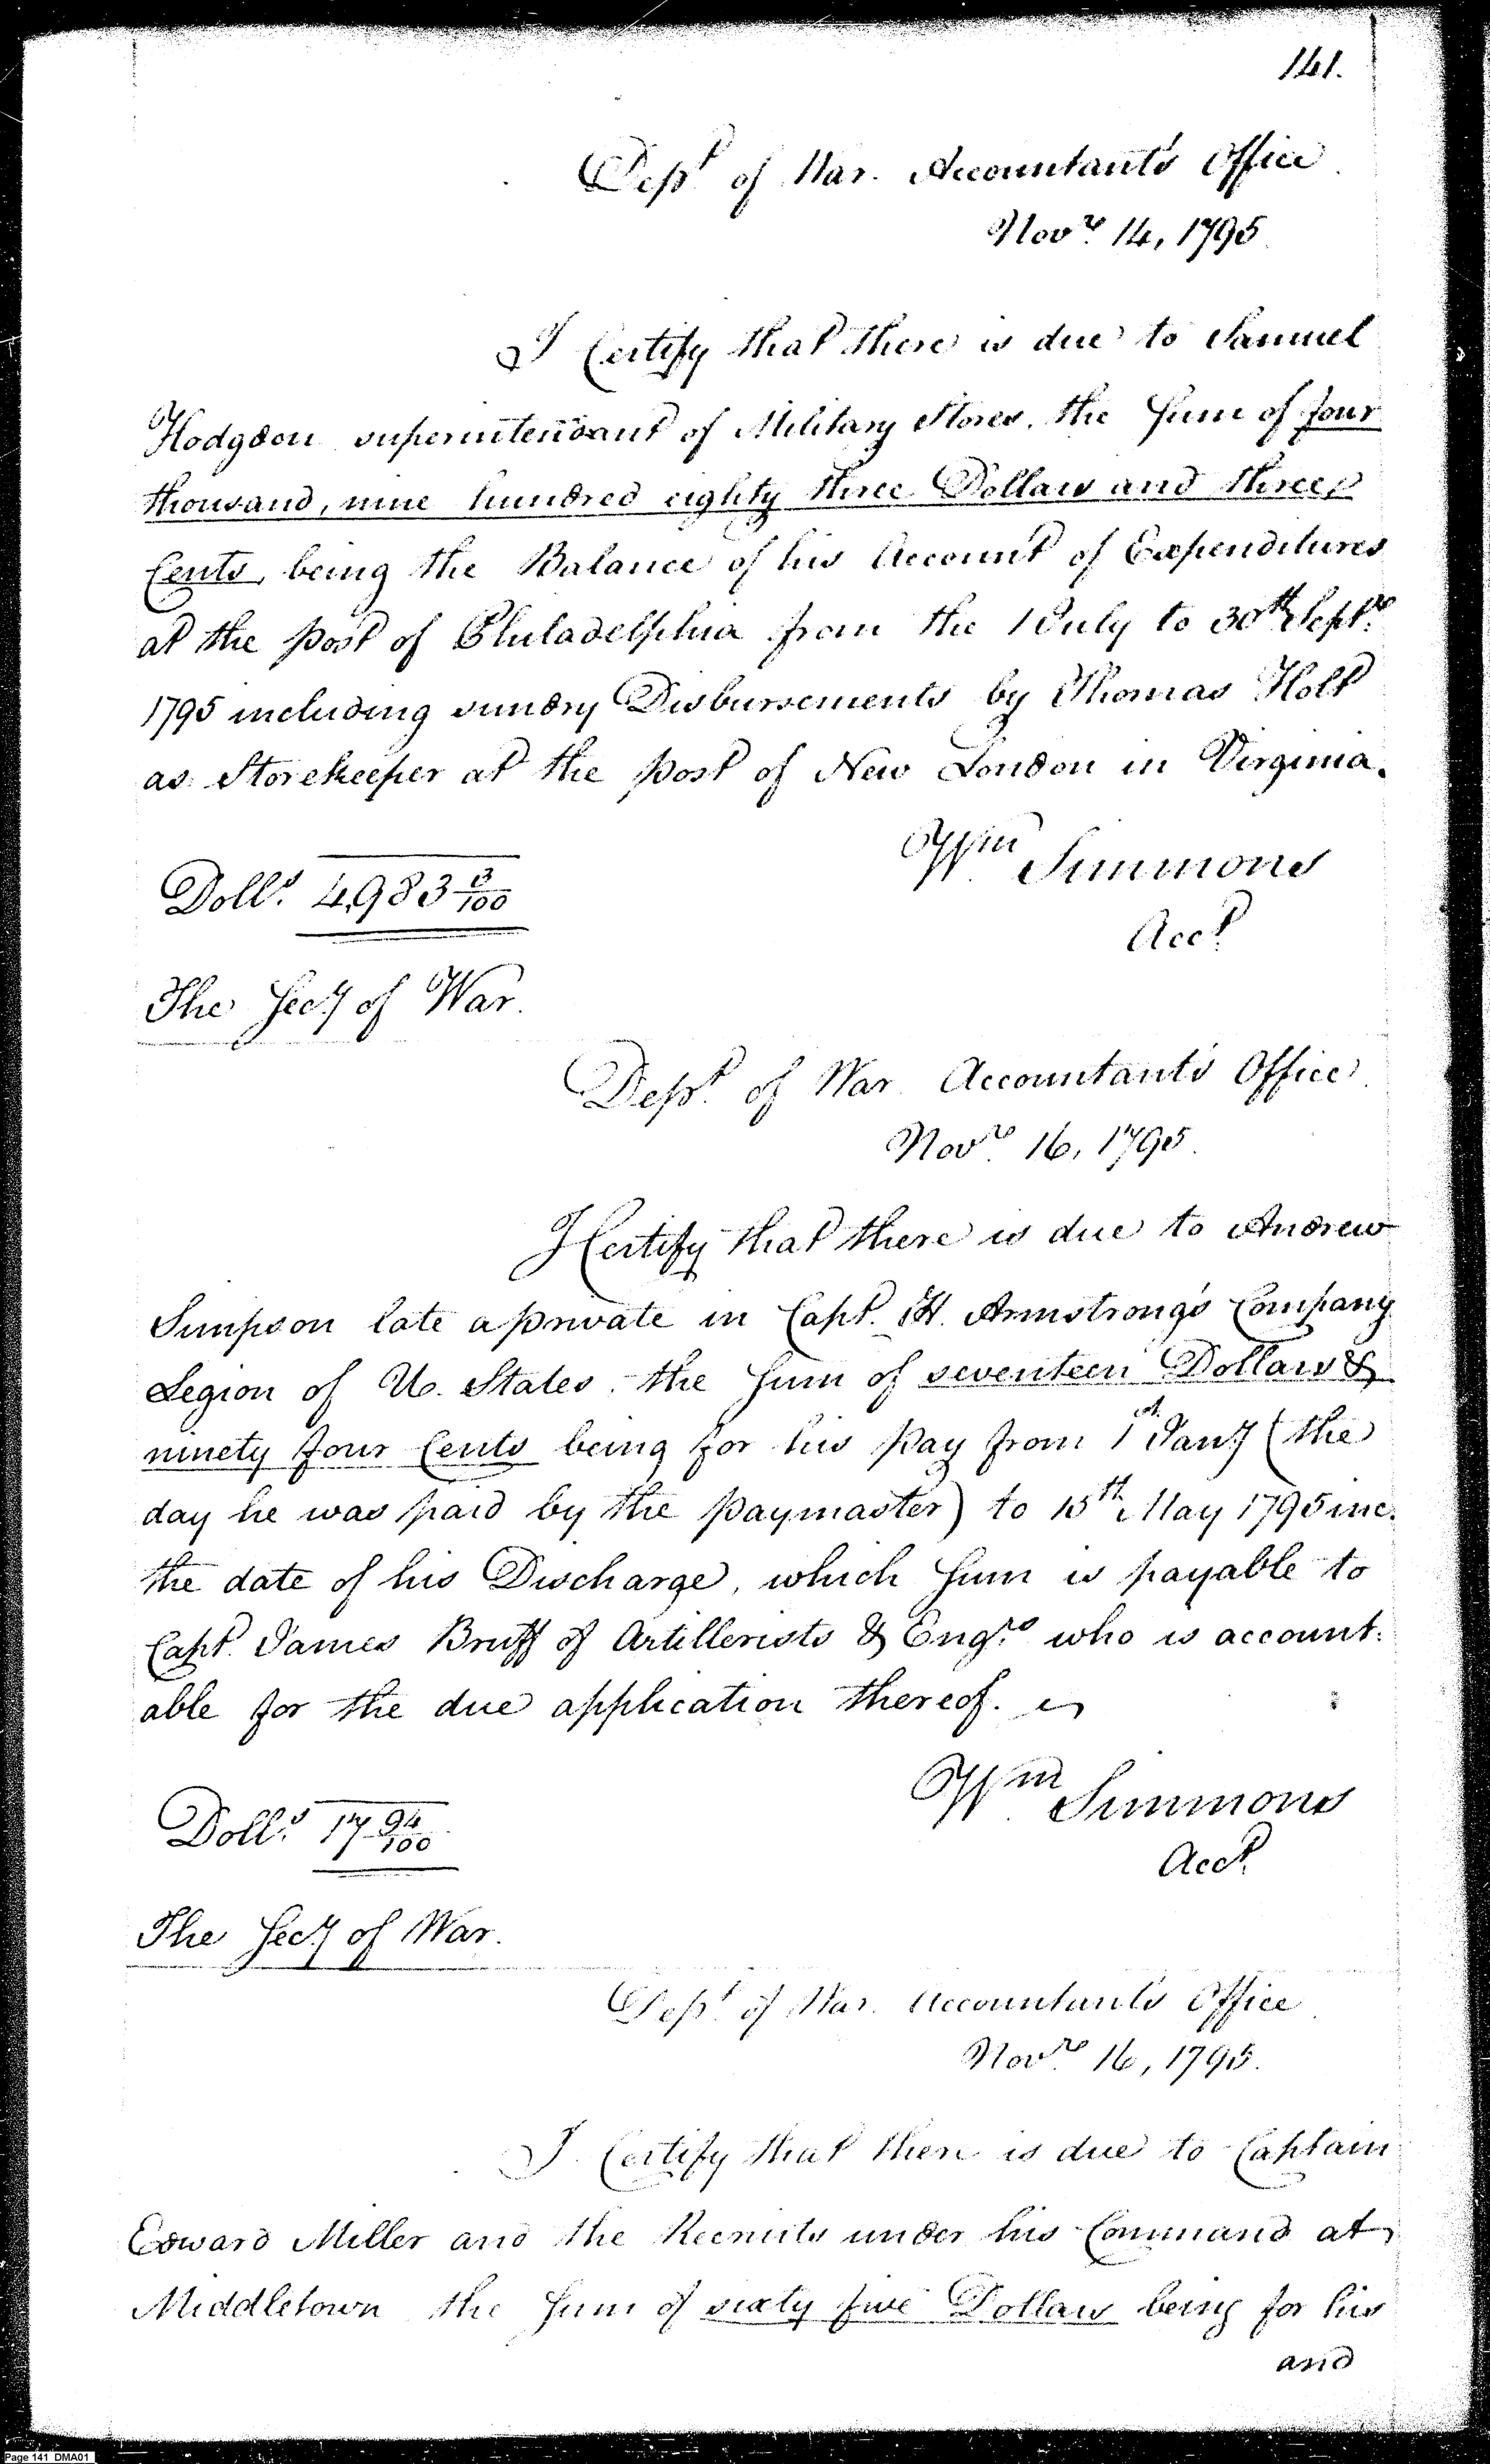 141.
Dept. of War. Accountant's Office
Novr. 14, 1795
I Certify that there is due to Samuel
Hodgdon superintendant of Military Stores, the Sum of four
thousand, nine hundred eighty three Dollars and three
Cents, being the Balance of his Account of Expenditures
at the post of Philadelphia from the 1 July to 30th Septr.
1795 including sundry Disbursements by Thomas Holt
as Storekeeper at the post of New London in Virginia.
Wm Simmons
Doll.s 4,983 3/100
Acct.
The Secy of War.
Dept. of War Accountant's Office
Novr. 16, 1795.
I Certify that there is due to Andrew
Simpson late a private in Capt. H. Armstrong's Company
Legion of U. States, the Sum of seventeen Dollars &
ninety four Cents being for his pay from 1st Jany (the
day he was paid by the paymaster) to 15th May 1795 inc.
the date of his Discharge, which Sum is payable to
Capt. James Bruff of Artillerists & Engrs. who is account:
able for the due application thereof.
Wm Simmons
Doll.s 17 94/100
Acct.
The Secy of War.
Dept. of War. Accountant's Office
Novr. 16, 1795.
I Certify that there is due to Captain
Edward Miller and the Recruits under his Command at
Middletown the Sum of sixty five Dollars being for his
and
Page 141 DMA01